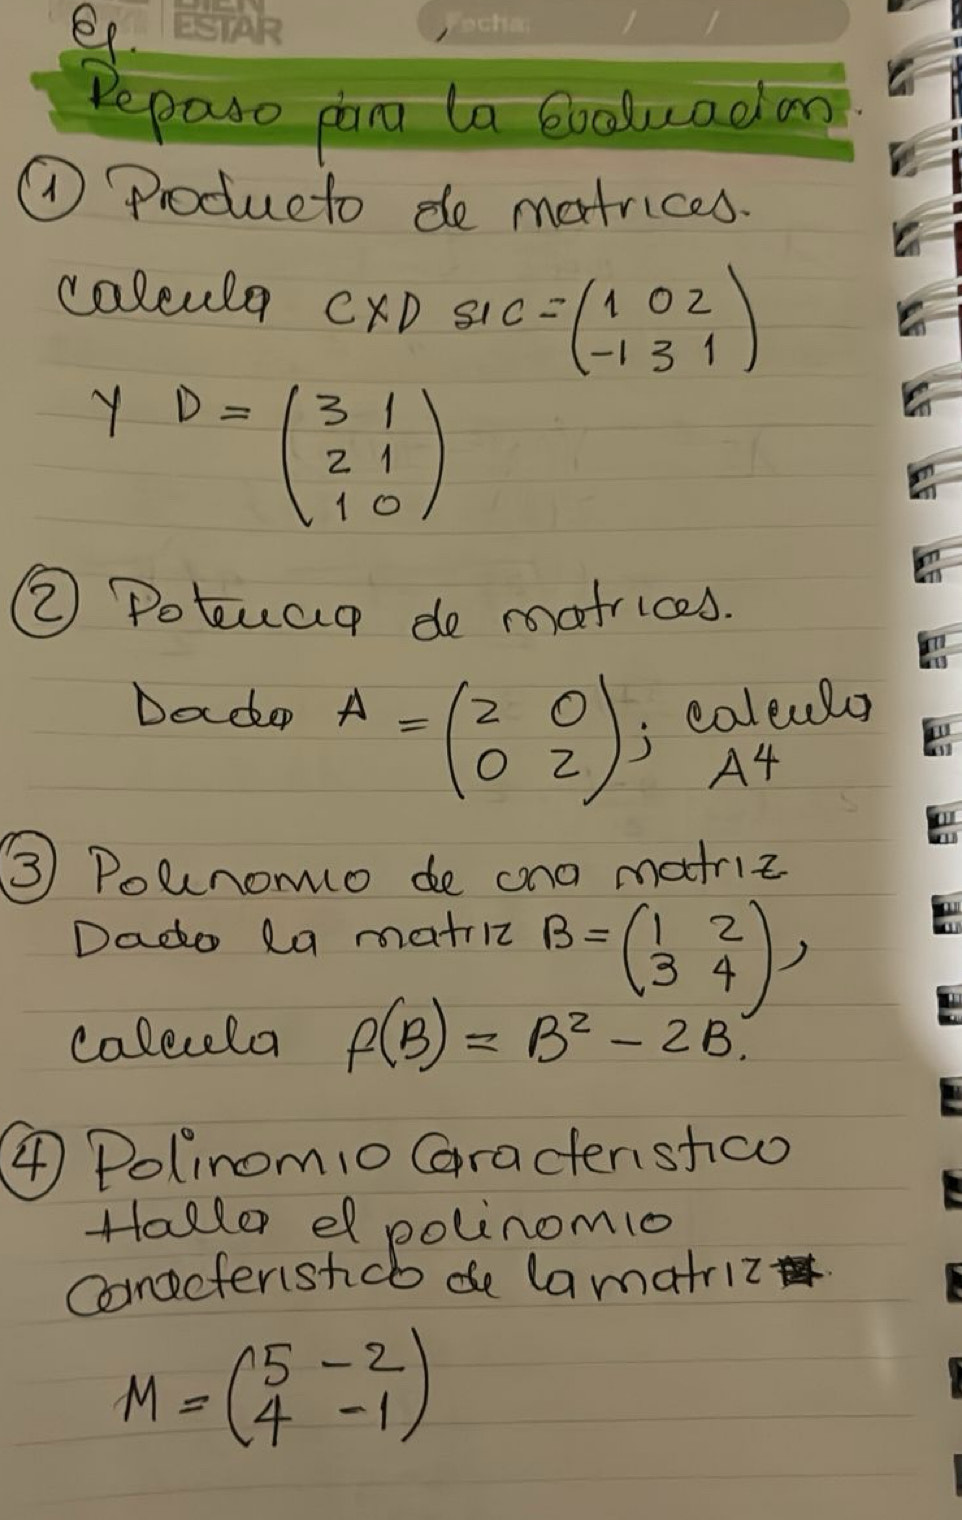 BIEN
ESTAR
Fecha: / /
Ej.
Repaso para la Evaluación.
① Producto de matrices.
Calcula C×D si C = (1 0 2
-1 3 1)
Y D = (3 1
2 1
1 0)
② Potencia de matrices.
Dada A = (2 0
0 2); calcula
A4
③ Polinomio de una matriz
Dado la matriz B = (1 2
3 4),
Calcula P(B) = B² - 2B.
④ Polinomio Caracteristico
Halla el polinomio
Caracteristico de la matriz
M = (5 -2
4 -1)